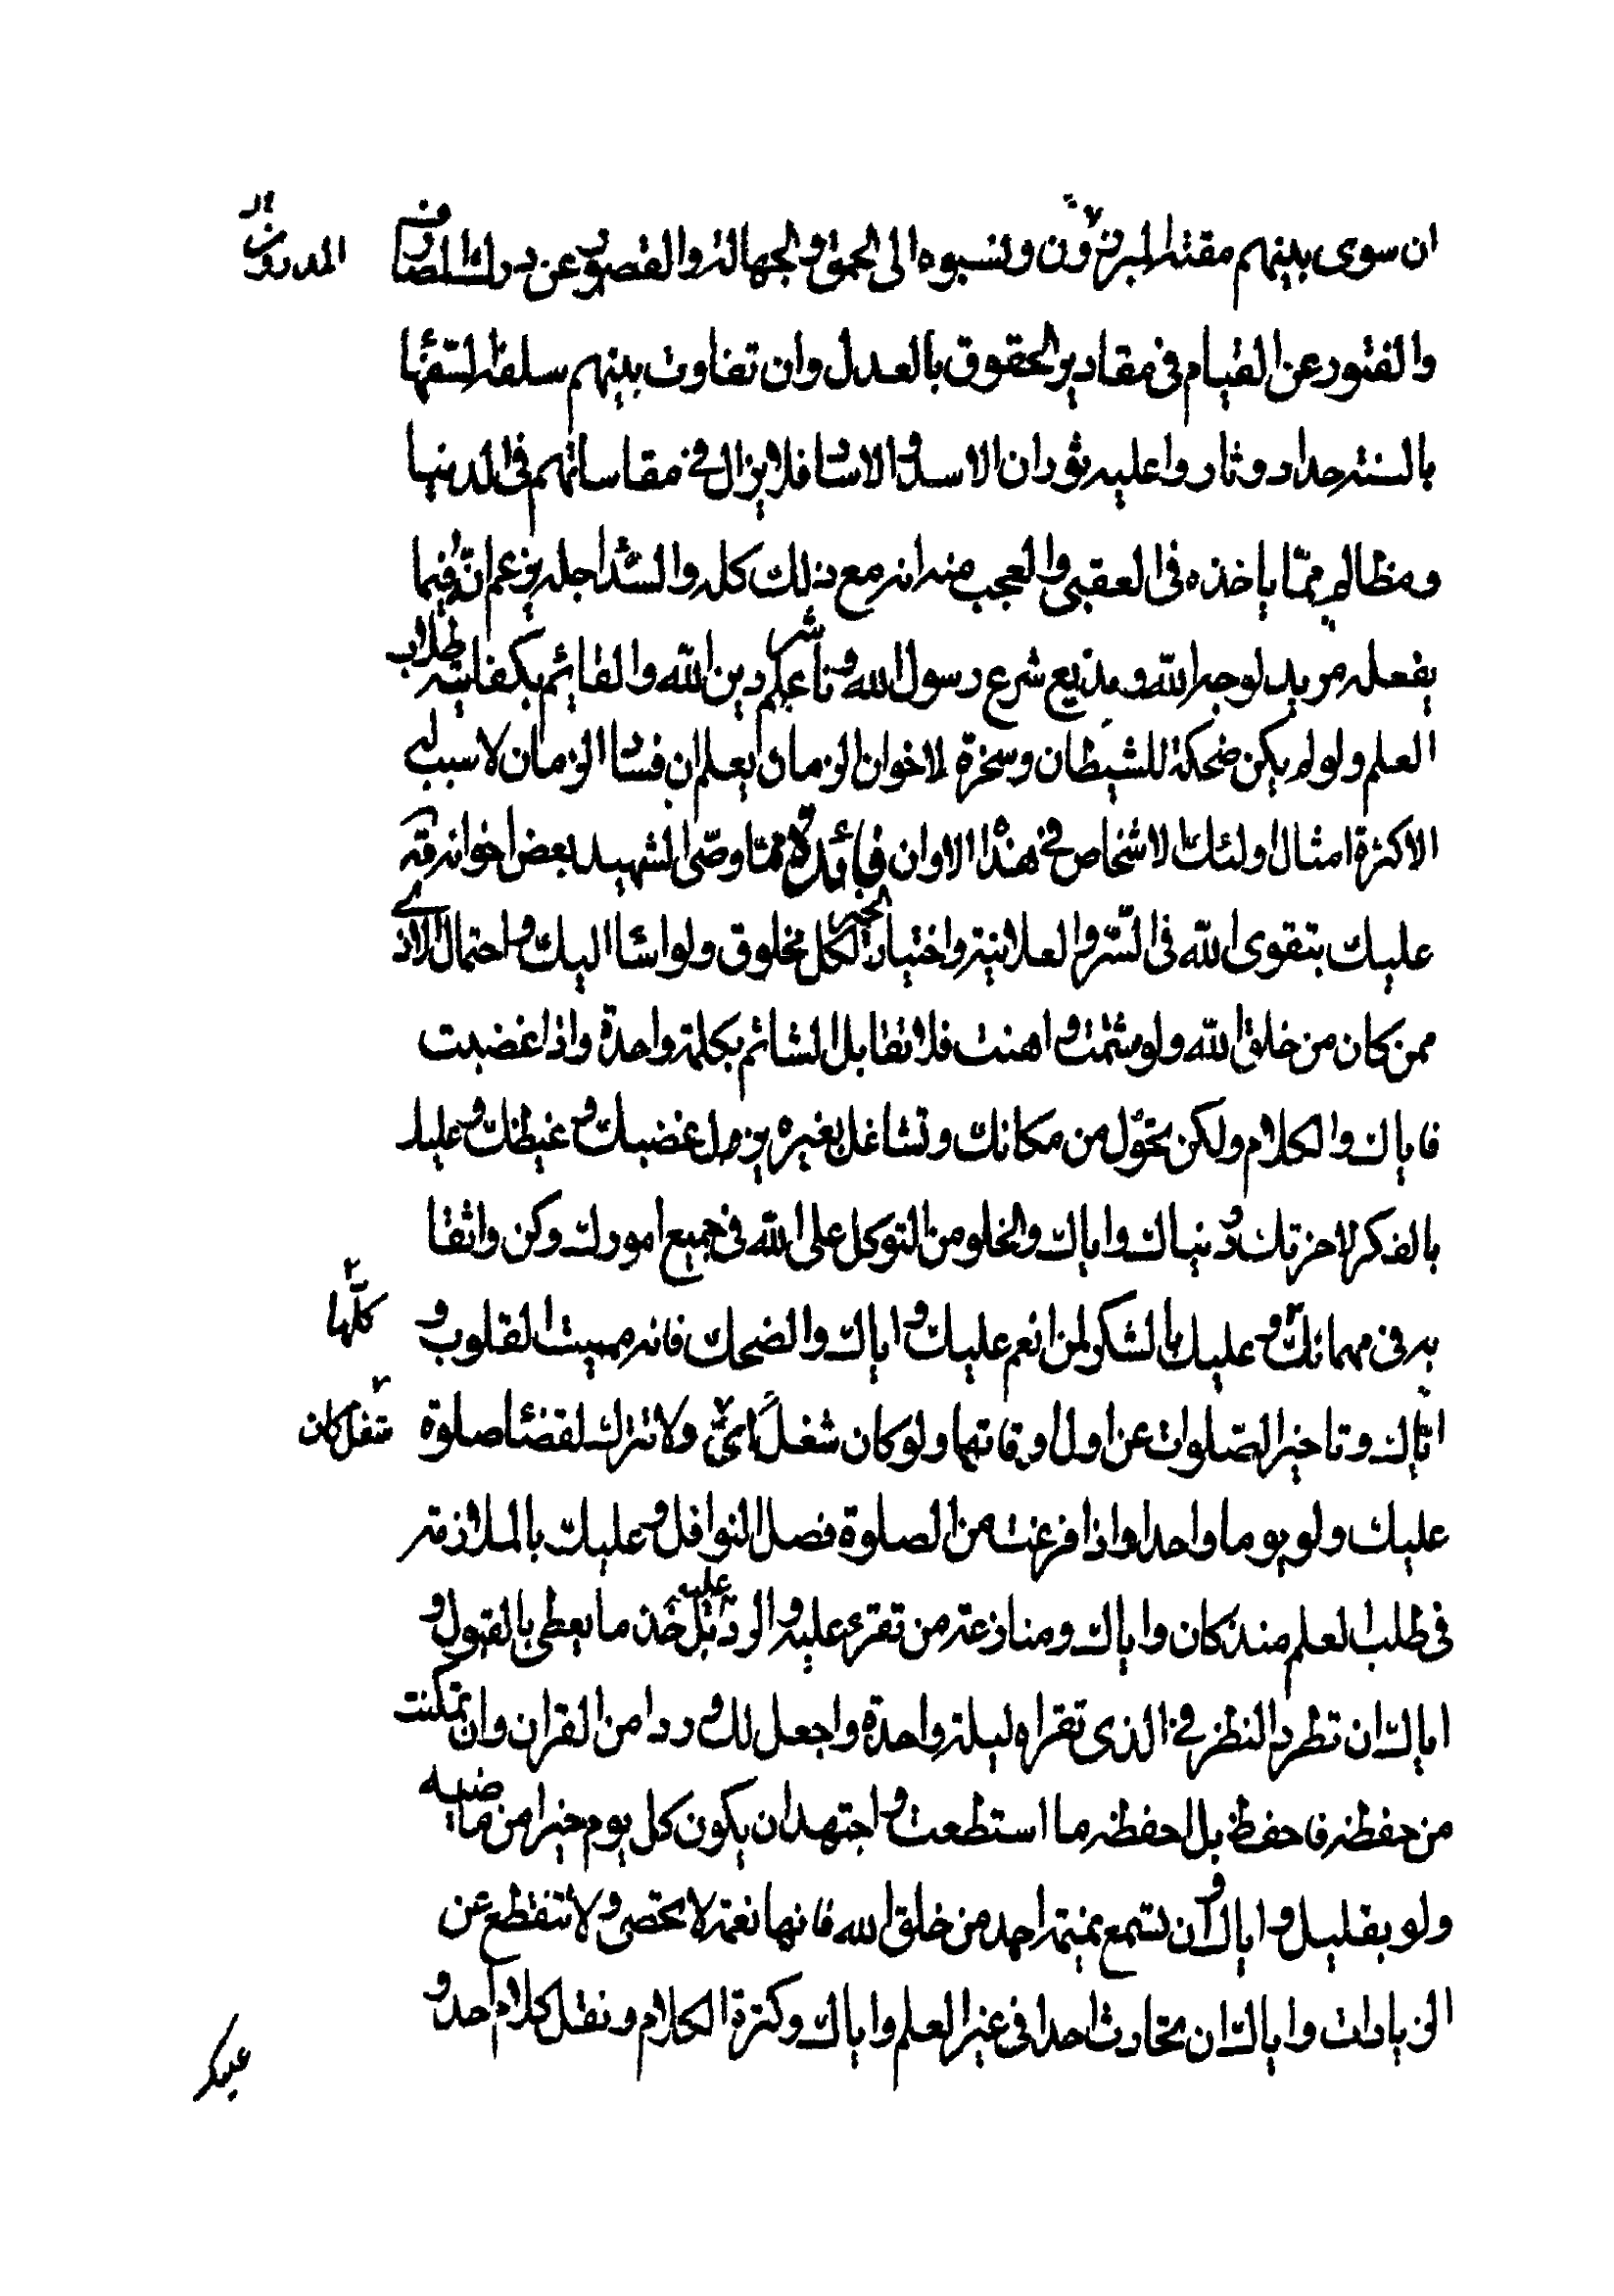 ان سوى بينهم مقته المبرزون ونسبوه الى الحمق والجهالة والقصور عن درك المصارف
المدروين
والفتور عن القيام فى مقادير الحقوق بالعدل وان تفاوت بينهم سلقه السفهاء
بالسنة حداد وثاروا عليه ثوران الاساود والاساد فلا يزال فى مقاساتهم فى الدنيا
ومظالم ممّا ياخذه فى العقبى والعجب منه انه مع ذلك كله والشداجله يزعم انّه فيما
يفعله مريد لوجه الله ومذيع شرع رسول الله وناشر علم دين الله والقائم بكفاية طلاب
العلم ولو لم يكن ضحكة للشيطان وسخرة لاخوان الزمان يعلم ان فساد الزمان لا سبب له
الا كثرة امثال اولئك الاشخاص فى هذا الاوان فائدة ممّا وصّى الشهيد بعض اخوانه
عليك بتقوى الله فى السّر والعلانية واختيار الخير لكل مخلوق ولو اساء اليك واحتمال الاذى
ممن كان من خلق الله ولو شتمت واهنت فلا تقابل الشاتم بكلمة واحدة واذا غضبت
فاياك والكلام ولكن تحوّل من مكانك وتشاغل بغيره يزول غضبك وغيظك وعليك
بالفكر لاخرتك ودنياك واياك والخلو من التوكل على الله فى جميع امورك وكن واثقا
به فى مهماتك وعليك بالشكر لمن انعم عليك واياك والضحك فانه مميت القلوب و
كلّها
ايّاك وتاخير الصّلوات عن اول اوقاتها ولو كان شغلًا اىّ ولا تترك لقضاء صلوة
شغل كان
عليك ولو يوما واحدا واذا فرغت من الصلوة فصل النوافل وعليك بالملازمة
فى طلب العلم منذ كان واياك ومنازعة من تقرء عليه والرد عليه بل خذ ما يعطى بالقبول و
اياك ان تطرد النظر فى الذى تقراه ليلة واحدة واجعل لك وردا من القران وان تمكنت
من حفظه فاحفظ بل احفظه ما استطعت واجتهد ان يكون كل يوم خيرا من ماضيه
ولو بقليل واياك وان تسمع نميمة احد من خلق الله فانها نعمة لا تحصى ولا تنقطع عن
الزيادات واياك ان تحادث احدا فى غير العلم واياك وكثرة الكلام ونقل كلام احد و